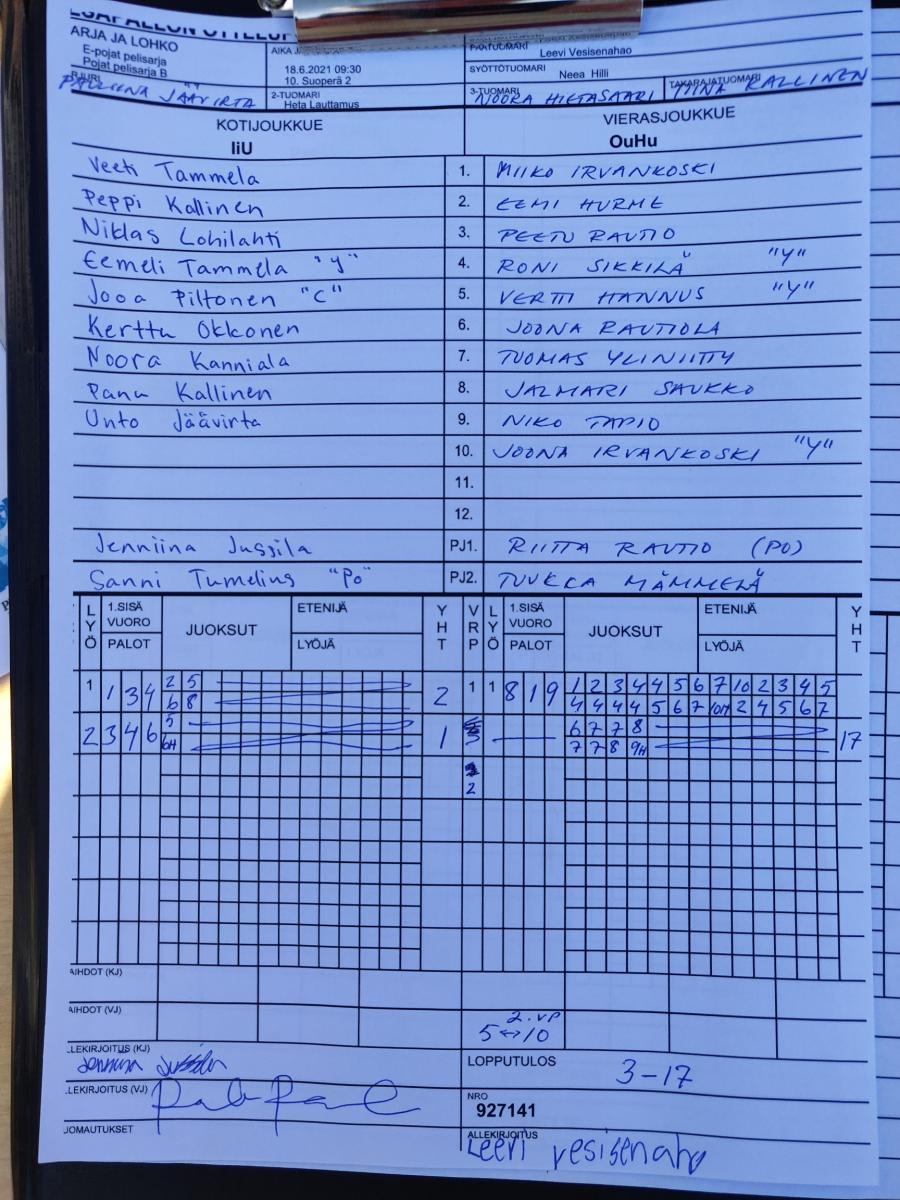 ARJA JA LOHKO
E-pojat pelisarja
Pojat pelisarja B
18.6.2021 09:30
10. Suoperä 2
PÄÄTUOMARI
Leevi Vesisenahao
SYÖTTÖTUOMARI
Neea Hilli
PAULIINA JÄÄVIRTA
2-TUOMARI
Heta Lauttamus
3-TUOMARI
NOORA HIETASAARI
TAKARAJATUOMARI
TIINA KALLINEN
KOTIJOUKKUE
IiU
VIERASJOUKKUE
OuHu
Veeti Tammela 1. MIIKO IRVANKOSKI
Peppi Kallinen 2. EEMI HURME
Niklas Lohilahti 3. PEETU RAUTIO
Eemeli Tammela "y" 4. RONI SIKKILÄ "Y"
Jooa Piltonen "C" 5. VERTTI HANNUS "Y"
Kerttu Okkonen 6. JOONA RAUTIOLA
Noora Kanniala 7. TUOMAS YLINIITTY
Panu Kallinen 8. JALMARI SAUKKO
Unto Jäävirta 9. NIKO TAPIO
10. JOONA IRVANKOSKI "Y"
11.
12.
Jenniina Jussila PJ1. RIITTA RAUTIO (PO)
Sanni Tumelius "Po" PJ2. TUUKKA MÄMMELÄ
LYÖ 1.SISÄ VUORO PALOT JUOKSUT ETENIJÄ LYÖJÄ YHT VRP LYÖ 1.SISÄ VUORO PALOT JUOKSUT ETENIJÄ LYÖJÄ YHT
1 1 3 4 2 5 2 1 1 8 1 9 1 2 3 4 4 5 6 7 10 2 3 4 5
6 8 4 4 4 4 5 6 7 10H 2 4 5 6 7
2 3 4 6 5 1 6 7 7 8 17
6H 7 7 8 9H
2
AIHDOT (KJ)
AIHDOT (VJ)
2. VP
5 ↔ 10
LLEKIRJOITUS (KJ)
Jenniina Jussila
LOPPUTULOS
3-17
LLEKIRJOITUS (VJ)
NRO
927141
UOMAUTUKSET
ALLEKIRJOITUS
Leevi vesisenaho